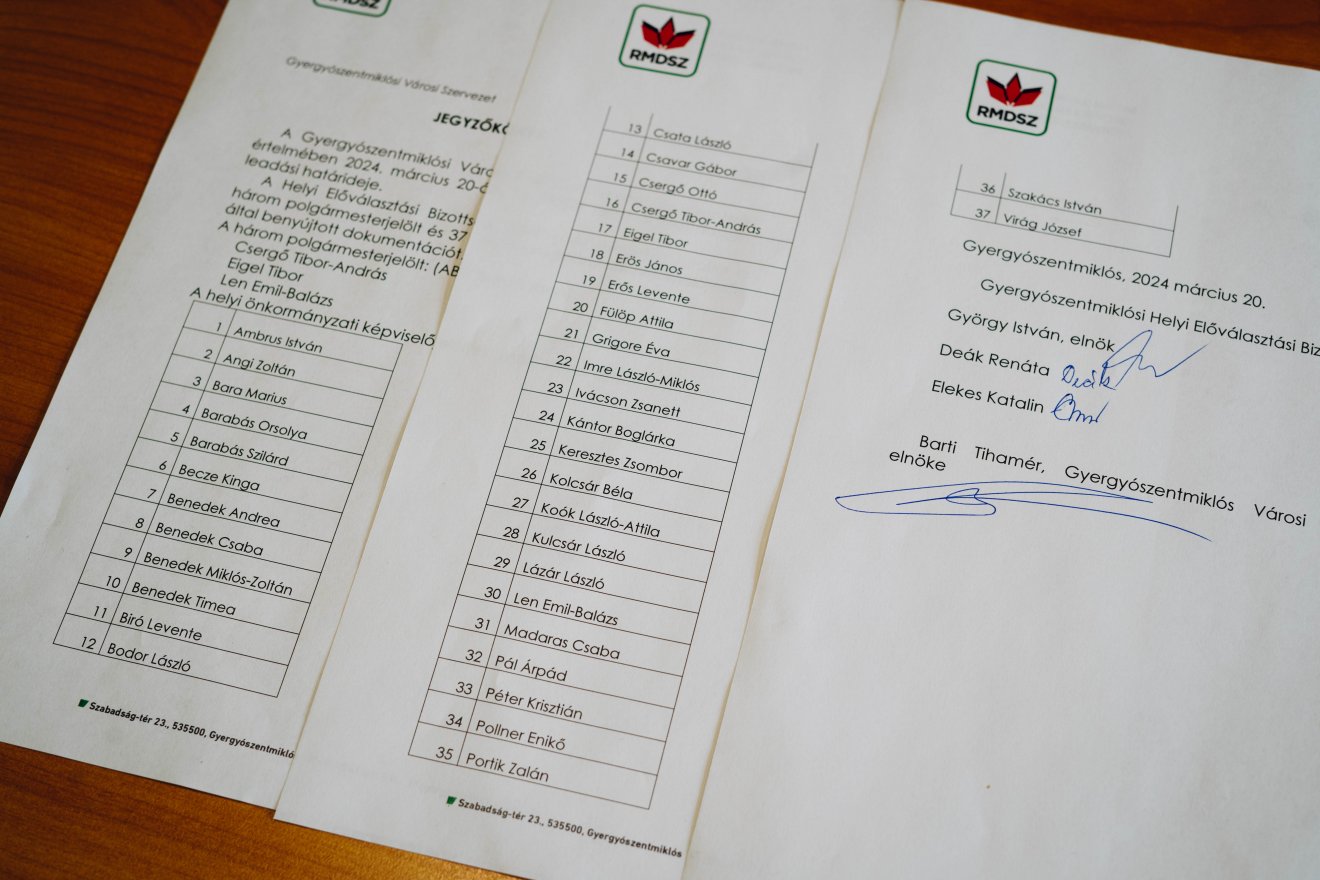 RMDSZ
Gyergyószentmiklósi Városi Szervezet
A Gyergyószentmiklósi
értelmében 2024. március
leadási határideje.
A Helyi Előválasztási
három polgármesterjelölt és 37
által benyújtott dokumentációt.
A három polgármesterjelölt:
Csergő Tibor-András
Eigel Tibor
Len Emil-Balázs
A helyi önkormányzati
1 Ambrus István
2 Angi Zoltán
3 Bara Marius
4 Barabás Orsolya
5 Barabás Szilárd
6 Becze Kinga
7 Benedek Andrea
8 Benedek Csaba
9 Benedek Miklós-Zoltán
10 Benedek Timea
11 Biró Levente
12 Bodor László
Szabadság-tér 23., 535500,
RMDSZ
13 Csata László
14 Csavar Gábor
15 Csergő Ottó
16 Csergő Tibor-András
17 Eigel Tibor
18 Erös János
19 Erős Levente
20 Fülöp Attila
21 Grigore Éva
22 Imre László-Miklós
23 Ivácson Zsanett
24 Kántor Boglárka
25 Keresztes Zsombor
26 Kolcsár Béla
27 Koók László-Attila
28 Kulcsár László
29 Lázár László
30 Len Emil-Balázs
31 Madaras Csaba
32 Pál Árpád
33 Péter Krisztián
34 Pollner Enikő
35 Portik Zalán
Szabadság-tér 23., 535500, Gyergyószentmiklós
RMDSZ
36 Szakács István
37 Virág József
Gyergyószentmiklós, 2024 március 20.
Gyergyószentmiklósi Helyi Előválasztási
György István, elnök
Deák Renáta Deák
Elekes Katalin
Barti Tihamér, Gyergyószentmiklós Városi
elnöke